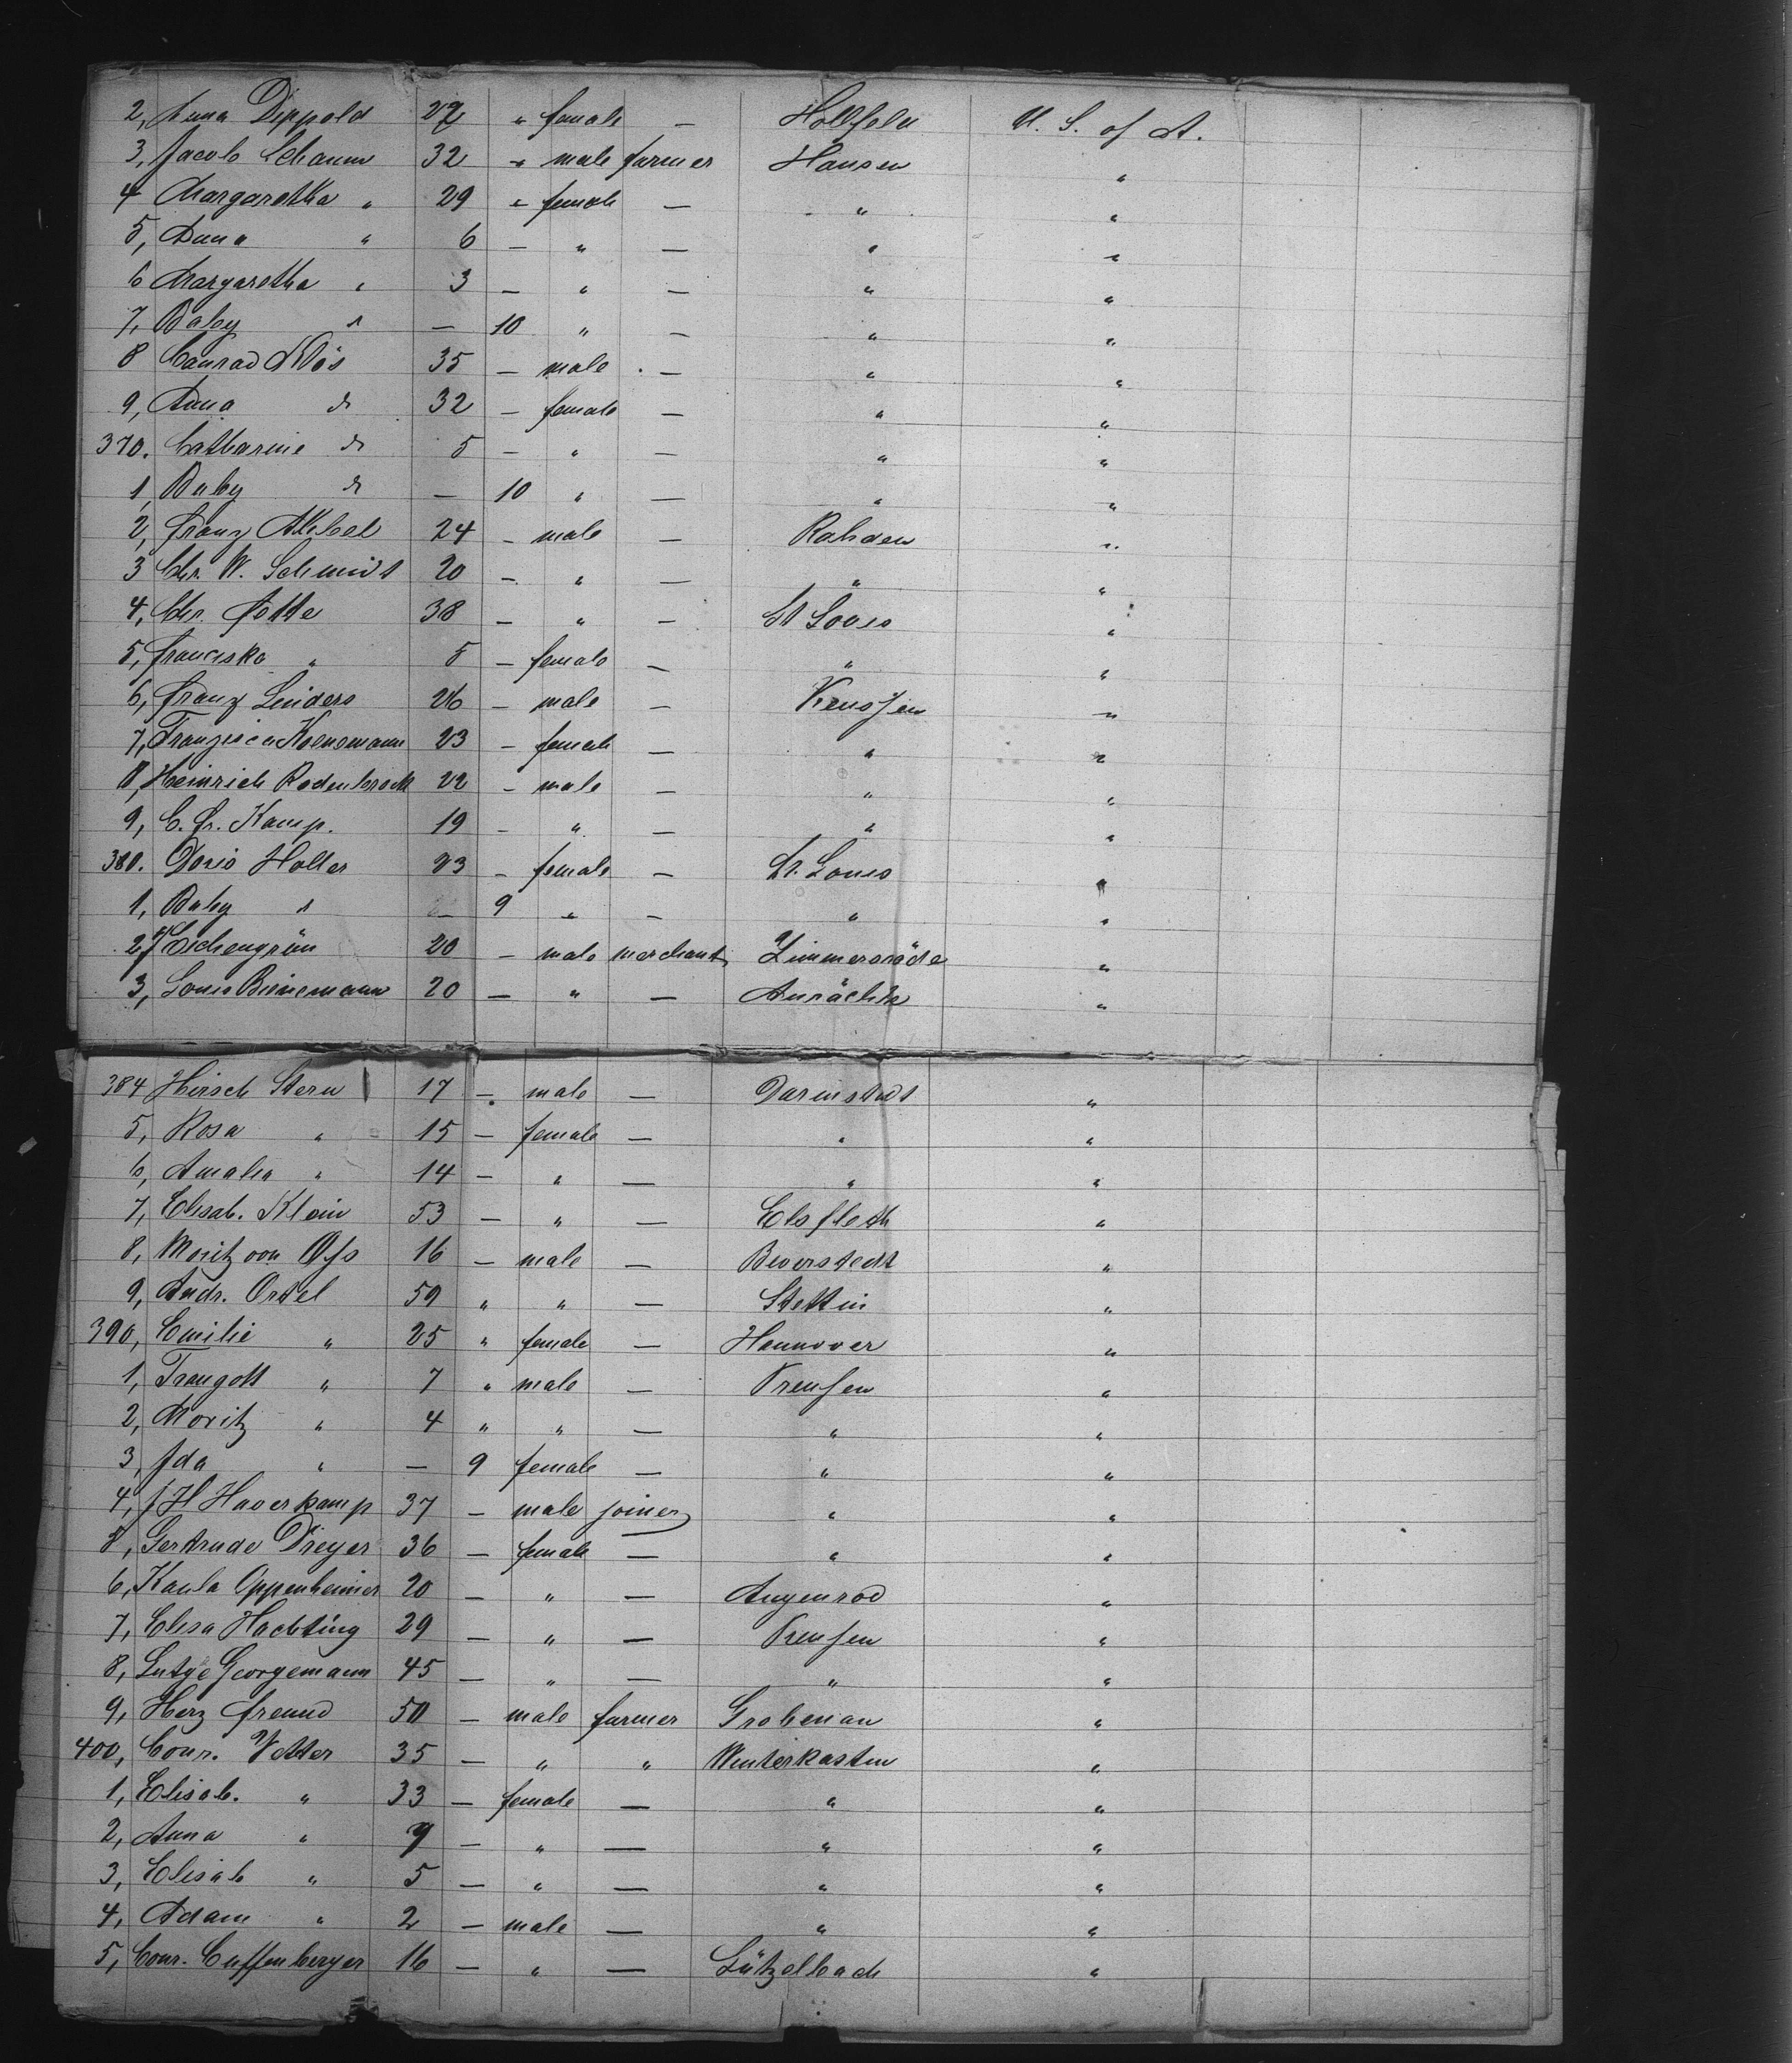 2, Anna Dippold 27 " female — Hollfeld U. S. of A.
3, Jacob Schaum 32 " male farmer Hausen "
4 Margaretha " 29 " female — " "
5, Anna " 6 — " — " "
6 Margaretha " 3 — " — " "
7, Baby " — 10 " — " "
8 Conrad Klös 35 — male — " "
9, Anna do 32 — female — " "
370. Catharine do 5 — " — " "
1, Baby do — 10 " — " "
2, Franz 24 — male — Rahden "
3 Chr. W. Schmidt 20 — " — " "
4, Chr. Jotte 38 — " — St Louis "
5, Franciska " 5 — female — " "
6, Franz Lüiders 26 — male — Preussen "
7, Franzisca Koenemann 23 — female — " "
8, Heinrich Rodenbrock 22 — male — " "
9, C. Fr. Kamp. 19 — " — " "
380. Doris Holler 23 — female — St. Louis "
1, Baby " — 9 " — " "
2, J Eschengrün 20 — male merchant Zimmersrode "
3, Louis Bienemann 20 — " — Anröchte "
384 Hirsch Stern 17 — male — Darmstadt "
5, Rosa " 15 — female — " "
6, Amalia " 14 — " — " "
7, Elisab. Klein 53 — " — Elsfleth "
8, Moritz von 16 — male — Beverstedt "
9, Andr. Ortel 59 " " — Stettin "
390, Emilie " 25 " female — Hannover "
1, Traugott " 7 " male — Preussen "
2, Moritz " 4 " " — " "
3, Ida " — 9 female — " "
4, J H Haverkamp 37 — male joiner " "
5, Gertrude Dreyer 36 — female — " "
6, Kaula Oppenheimer 20 — " — Angenrod "
7, Elisa Hachting 29 — " — Preussen "
8, Lutge Georgemann 45 — " — " "
9, Herz Freund 50 — male farmer Grobenau "
400, Conr. Vetter 35 — " " Winterkasten "
1, Elisab. " 33 — female — " "
2, Anna " 9 — " — " "
3, Elisab " 5 — " — " "
4, Adam " 2 — male — " "
5, Conr. Cuffenberger 16 — " — Lützelbach "